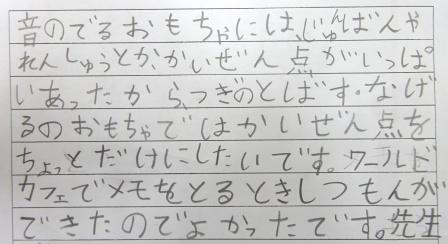 音のでるおもちゃには、じゅんばんや
れんしゅうとか、かいぜん点がいっぱ
いあったから、つぎのとばす・なげ
るのおもちゃではかいぜん点を
ちょっとだけにしたいです。ワールド
カフェでメモをとるときしつもんが
できたのでよかったです。先生